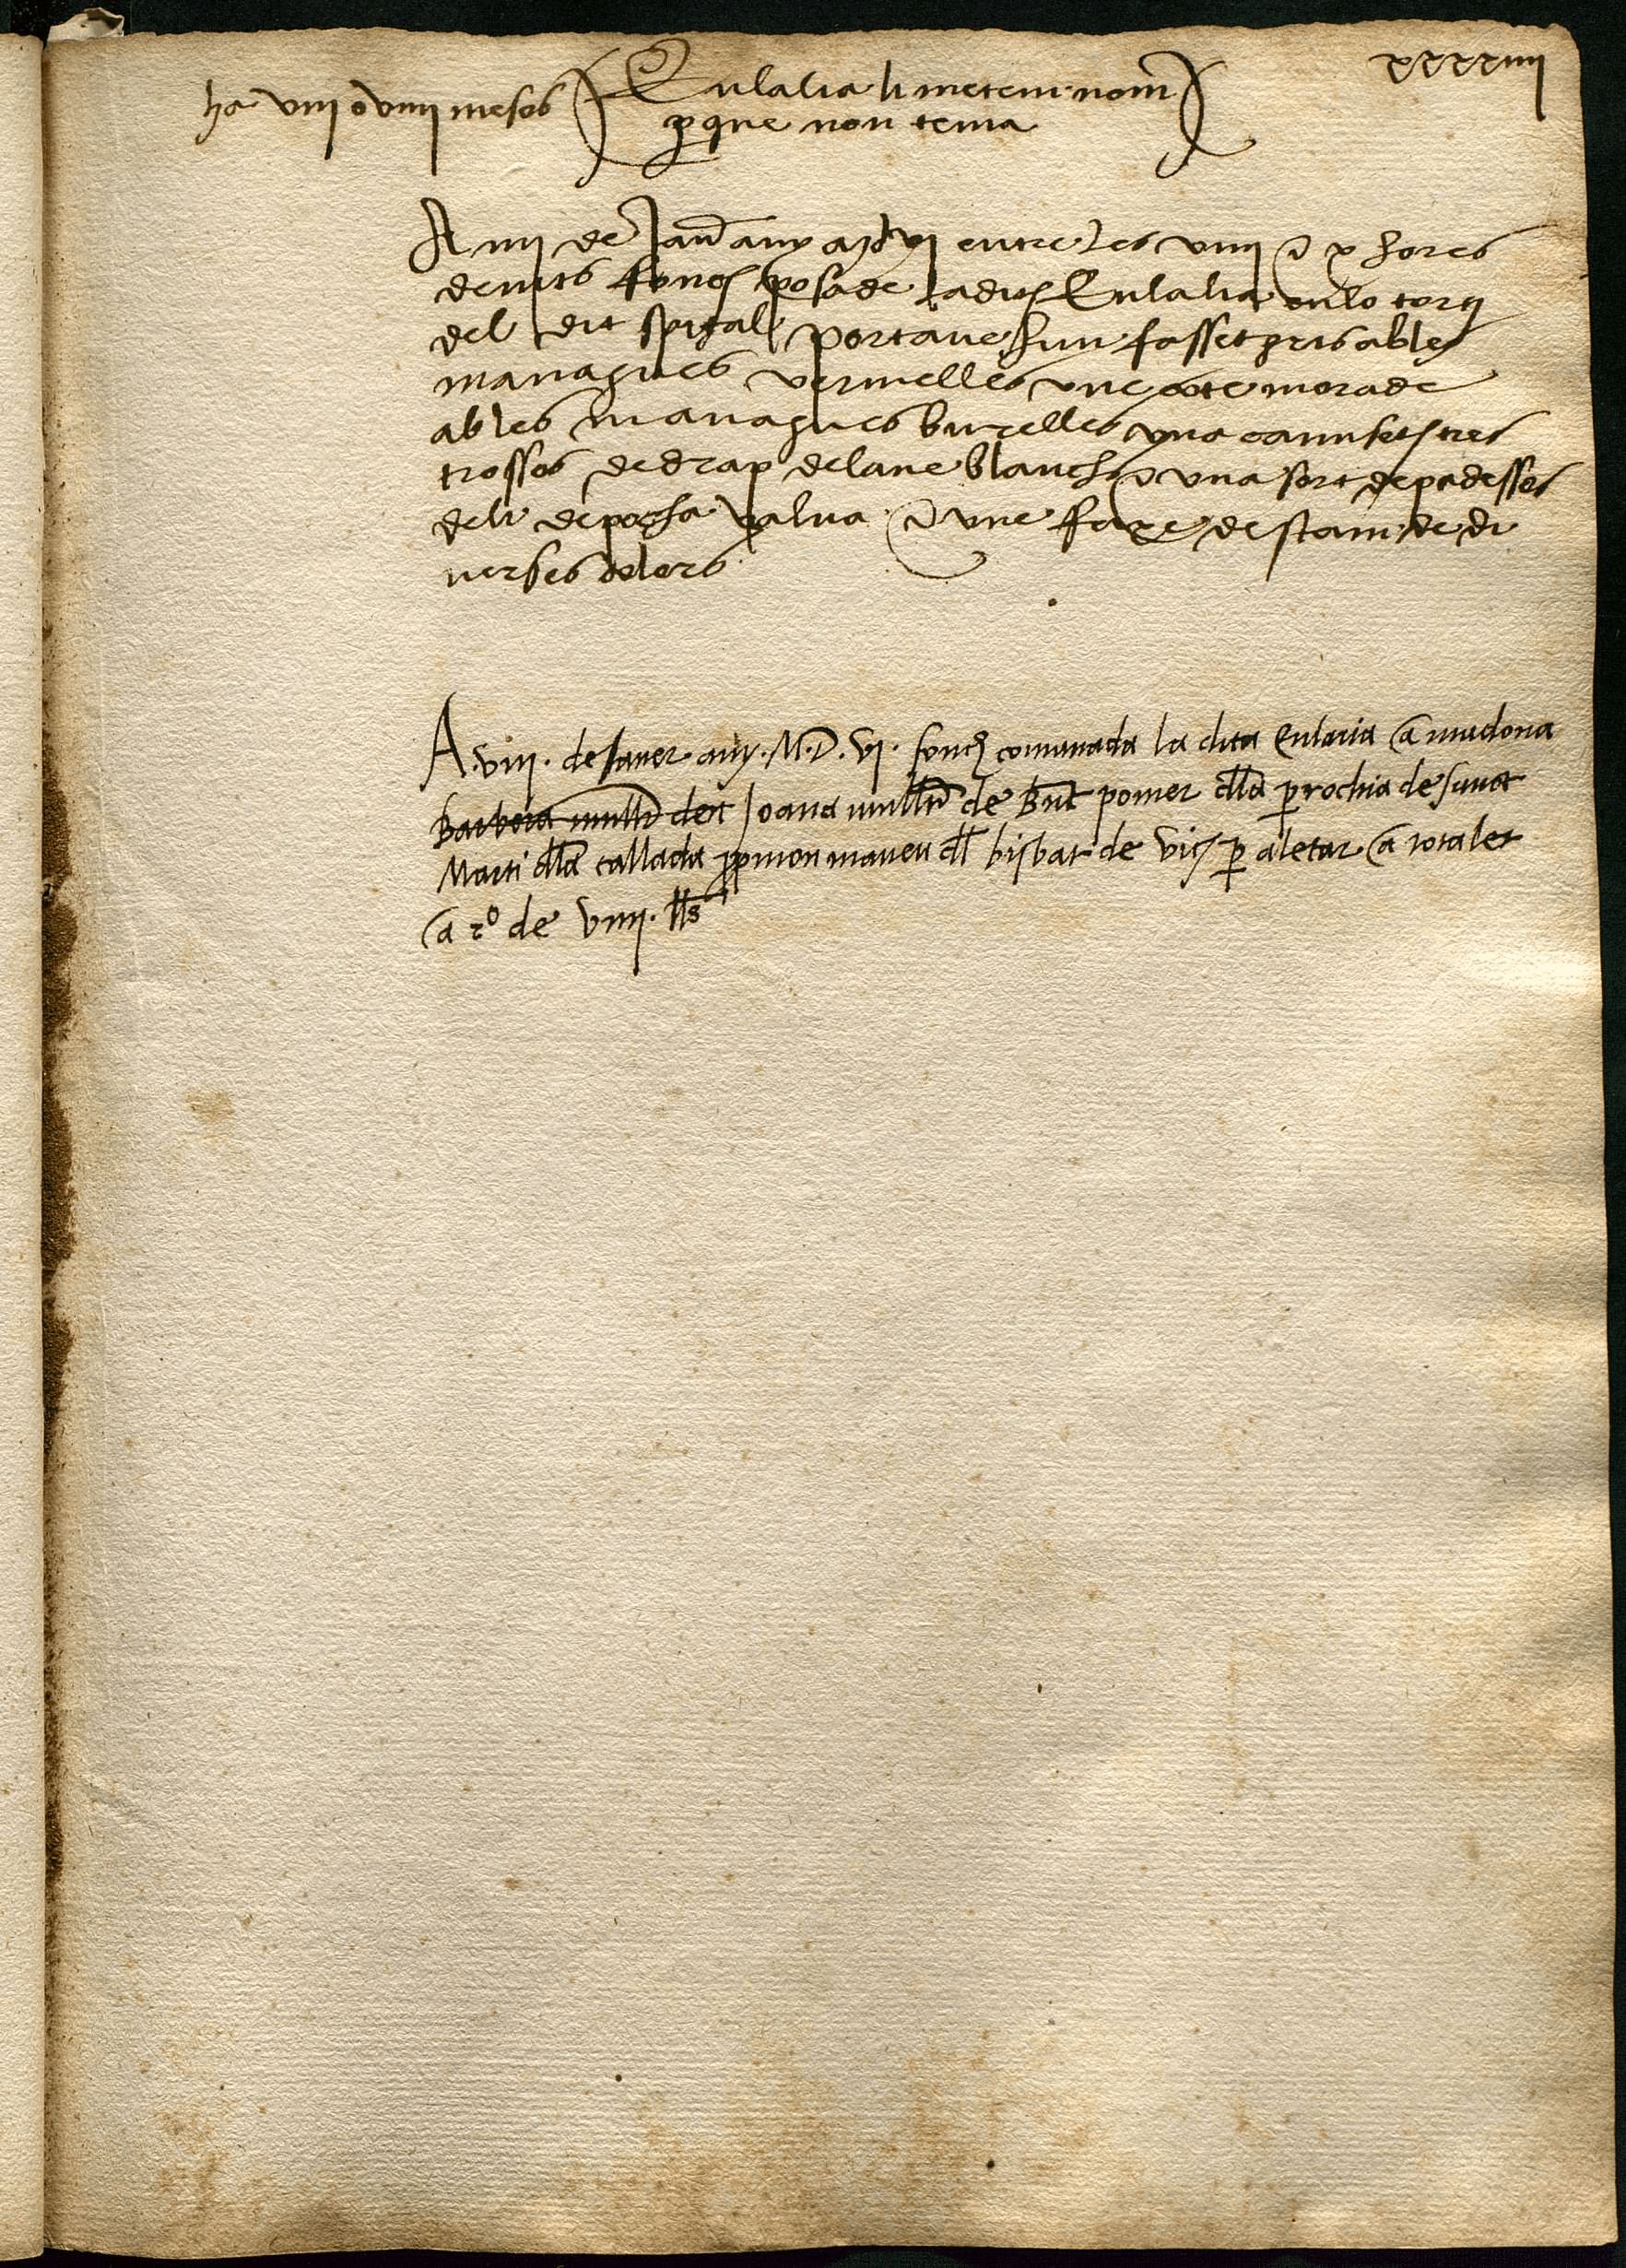 xxxxiiii
ha viii o viiii mesos
Eulalia li metem nom
perque non tenia
A iiii de Janer any mdvi entre les viiii e x hores
de nits fonch posade la dita Eulalia en lo torn
del dit spital portave hun fasset gris ables
managues vermelles une cote morade
ables managues burelles una camiseta tres
trossos de drap de lane blanch e una sort de pedesses
de li de pocha valua e une faxe de stam de di
verses colors
A viii. de Janer any. M.D.vi. fonch comanada la dita Eularia a madona
Barbera mullr den Joana mullr de Bnt pomer dlla perrochia de sanct
Marti dlla callada prop monmaneu dll bisbat de vich per aletar a tota let
a ro de viiii. lls